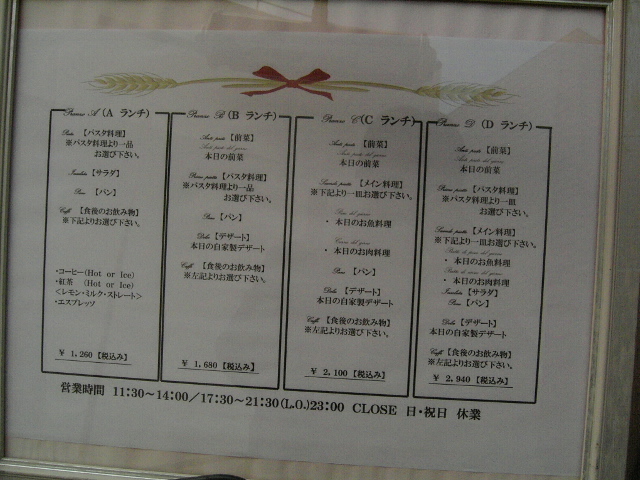 Pranzo A (A ランチ)
Pasta 【パスタ料理】
※パスタ料理より一品
お選び下さい。
Insalata 【サラダ】
Pane 【パン】
Caffè 【食後のお飲み物】
※下記よりお選び下さい。
・コーヒー(Hot or Ice)
・紅茶 (Hot or Ice)
<レモン・ミルク・ストレート>
・エスプレッソ
¥ 1,260 【税込み】
Pranzo B (B ランチ)
【前菜】
本日の前菜
【パスタ料理】
※パスタ料理より一品
お選び下さい。
Pane 【パン】
Dolce 【デザート】
本日の自家製デザート
Caffè 【食後のお飲み物】
※左記よりお選び下さい。
¥ 1,680 【税込み】
Pranzo C (C ランチ)
【前菜】
本日の前菜
【メイン料理】
※下記より一皿お選び下さい。
・本日のお魚料理
・本日のお肉料理
Pane 【パン】
Dolce 【デザート】
本日の自家製デザート
Caffè 【食後のお飲み物】
※左記よりお選び下さい。
¥ 2,100 【税込み】
Pranzo D (D ランチ)
【前菜】
本日の前菜
【パスタ料理】
※パスタ料理より一皿
お選び下さい。
【メイン料理】
※下記より一皿お選び下さい。
・本日のお魚料理
・本日のお肉料理
Insalata 【サラダ】
Pane 【パン】
Dolce 【デザート】
本日の自家製デザート
Caffè 【食後のお飲み物】
※左記よりお選び下さい。
¥ 2,940 【税込み】
営業時間 11:30~14:00/17:30~21:30(L.O.)23:00 CLOSE 日・祝日 休業